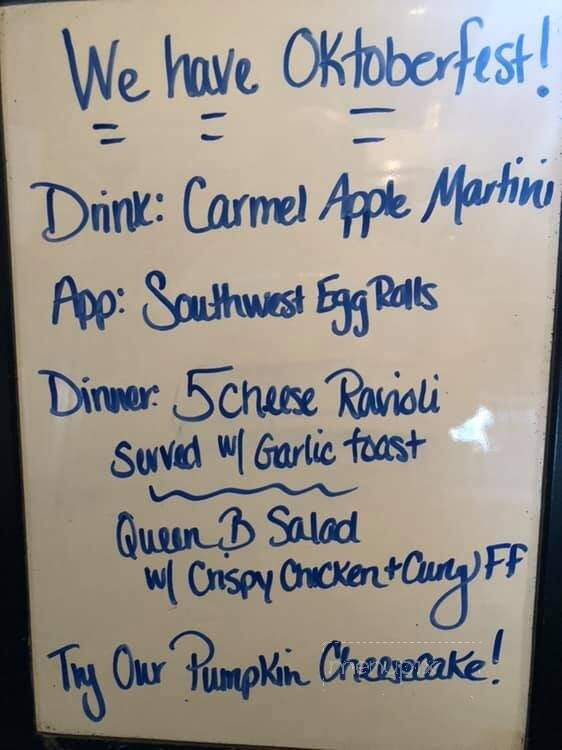 We have Oktoberfest!
Drink: Carmel Apple Martini
App: Southwest Egg Rolls
Dinner: 5 Cheese Ravioli
Served w/ Garlic toast
Queen B Salad
w/ Crispy Chicken + Curly FF
Try Our Pumpkin Cheesecake!
menupix